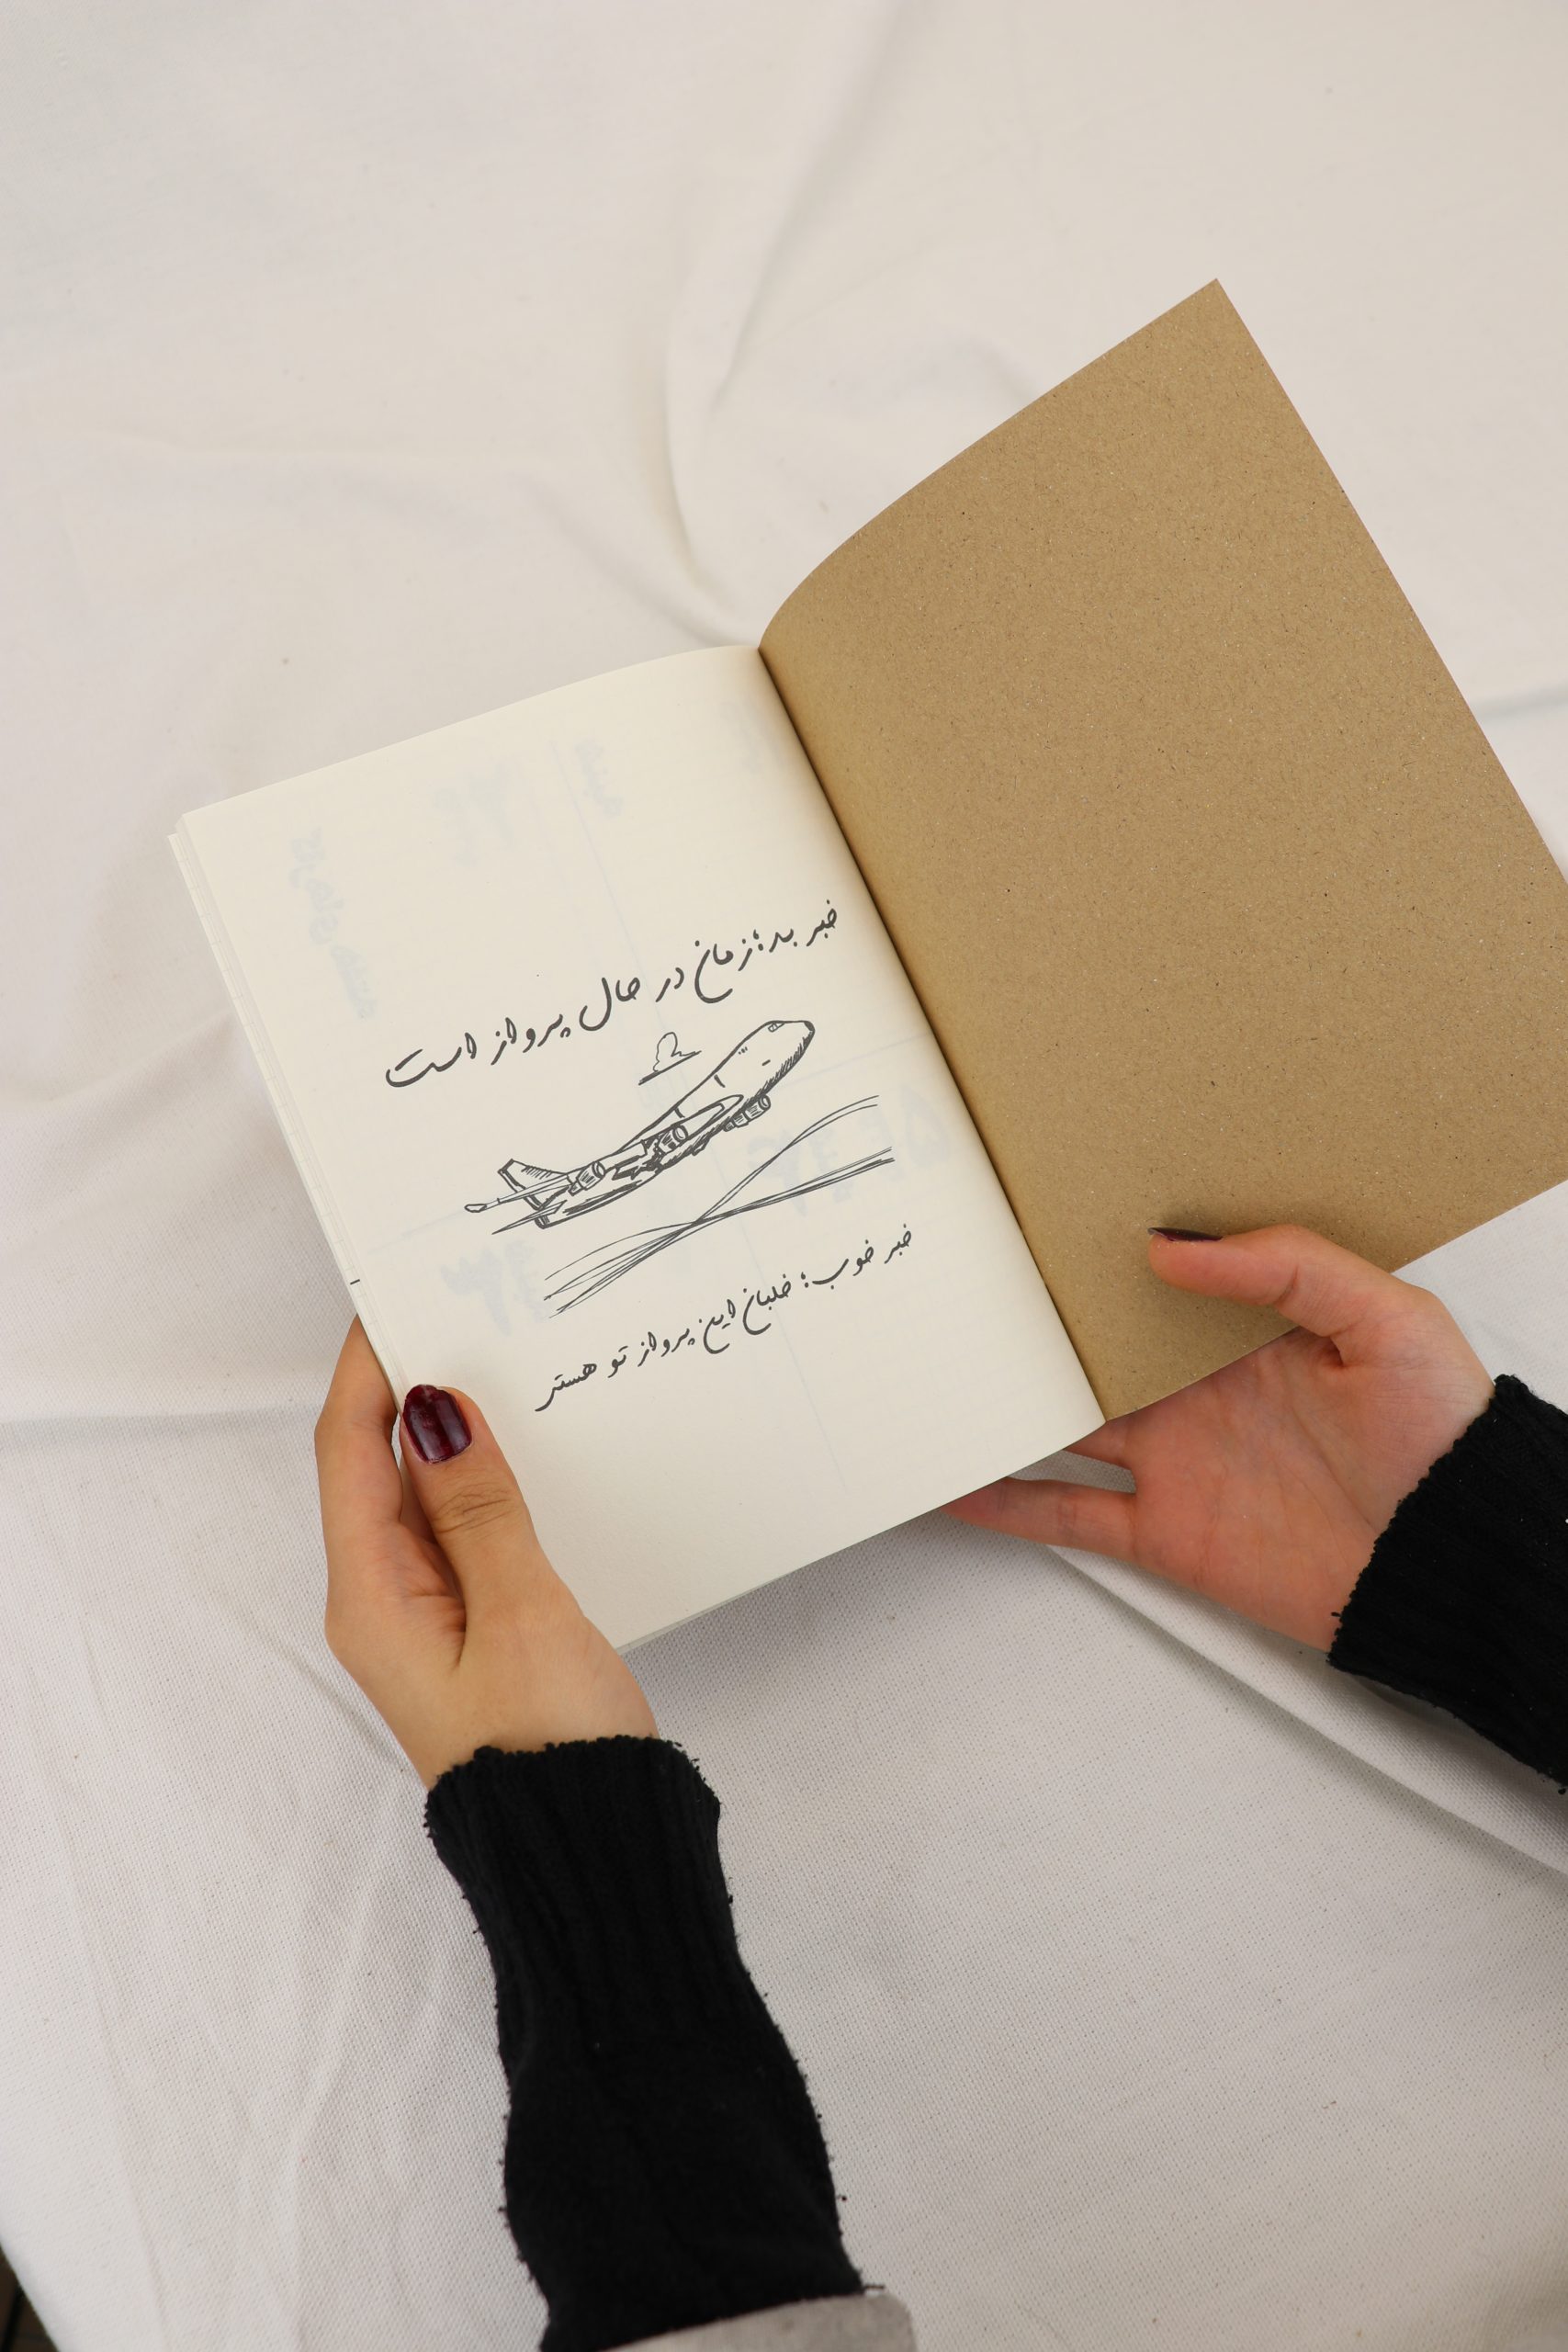 خبر بد؛ زمان در حال پرواز است
خبر خوب؛ خلبان این پرواز تو هستی